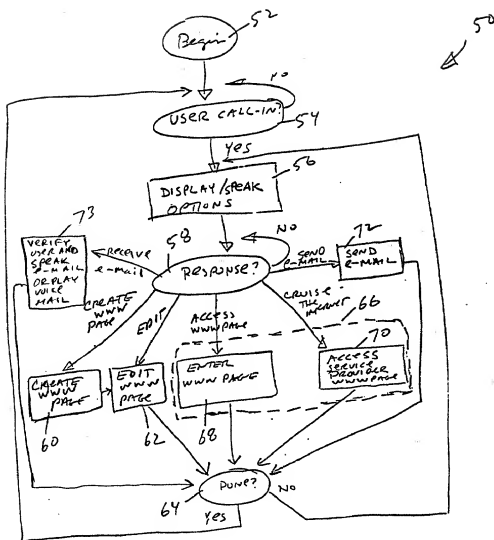 Begin
52
50
NO
USER CALL-IN?
54
Yes
DISPLAY/SPEAK
OPTIONS
56
NO
58
RESPONSE?
73
VERIFY
USER AND
SPEAK
e-MAIL
OR PLAY
VOICE
MAIL
receive
e-mail
SEND
e-MAIL
72
SEND
e-MAIL
CREATE
WWW
PAGE
EDIT
ACCESS
WWW PAGE
CRUISE
THE
INTERNET
66
CREATE
WWW
PAGE
60
EDIT
WWW
PAGE
62
ENTER
WWW PAGE
68
70
ACCESS
SERVICE
PROVIDER
WWW PAGE
64
DONE?
NO
Yes